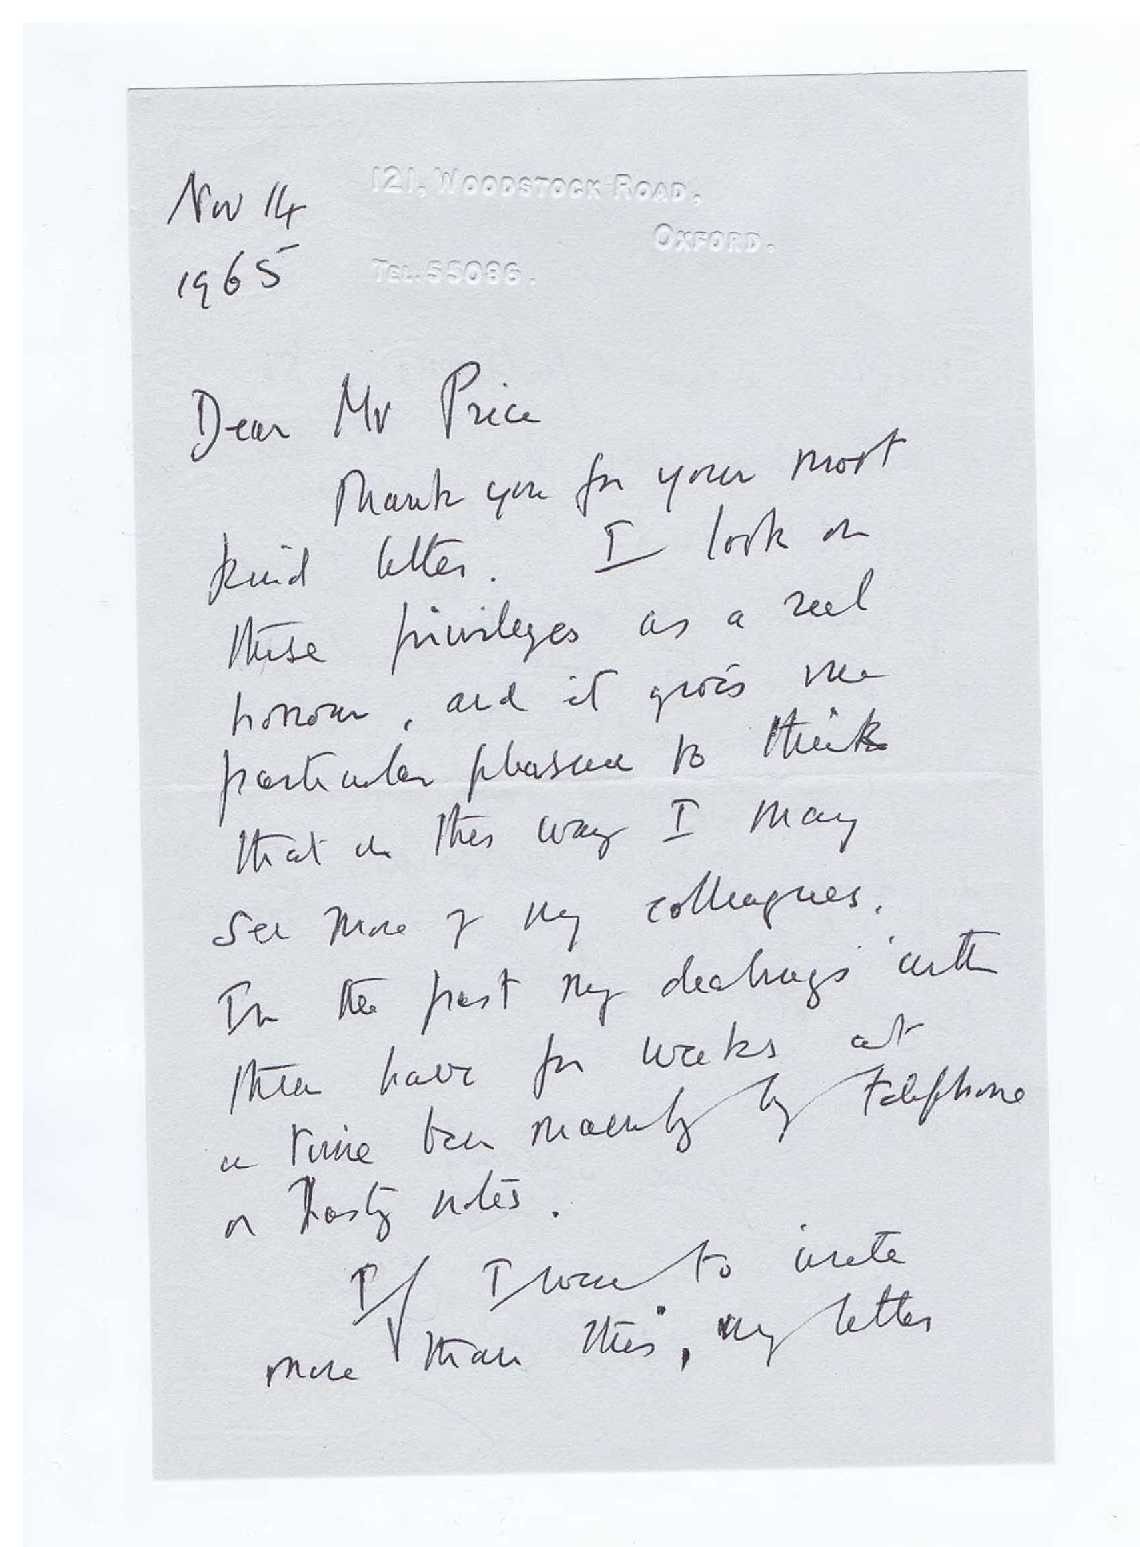 121, WOODSTOCK ROAD,
OXFORD.
TEL. 55086.
Nov 14
1965
Dear Mr Price
Thank you for your most
kind letter. I look on
these privileges as a real
honour, and it gives me
particular pleasure to think
that in this way I may
see more of my colleagues.
In the past my dealings with
them have for weeks at
a time been mainly by telephone
or hasty notes.
If I were to write
more than this, my letter